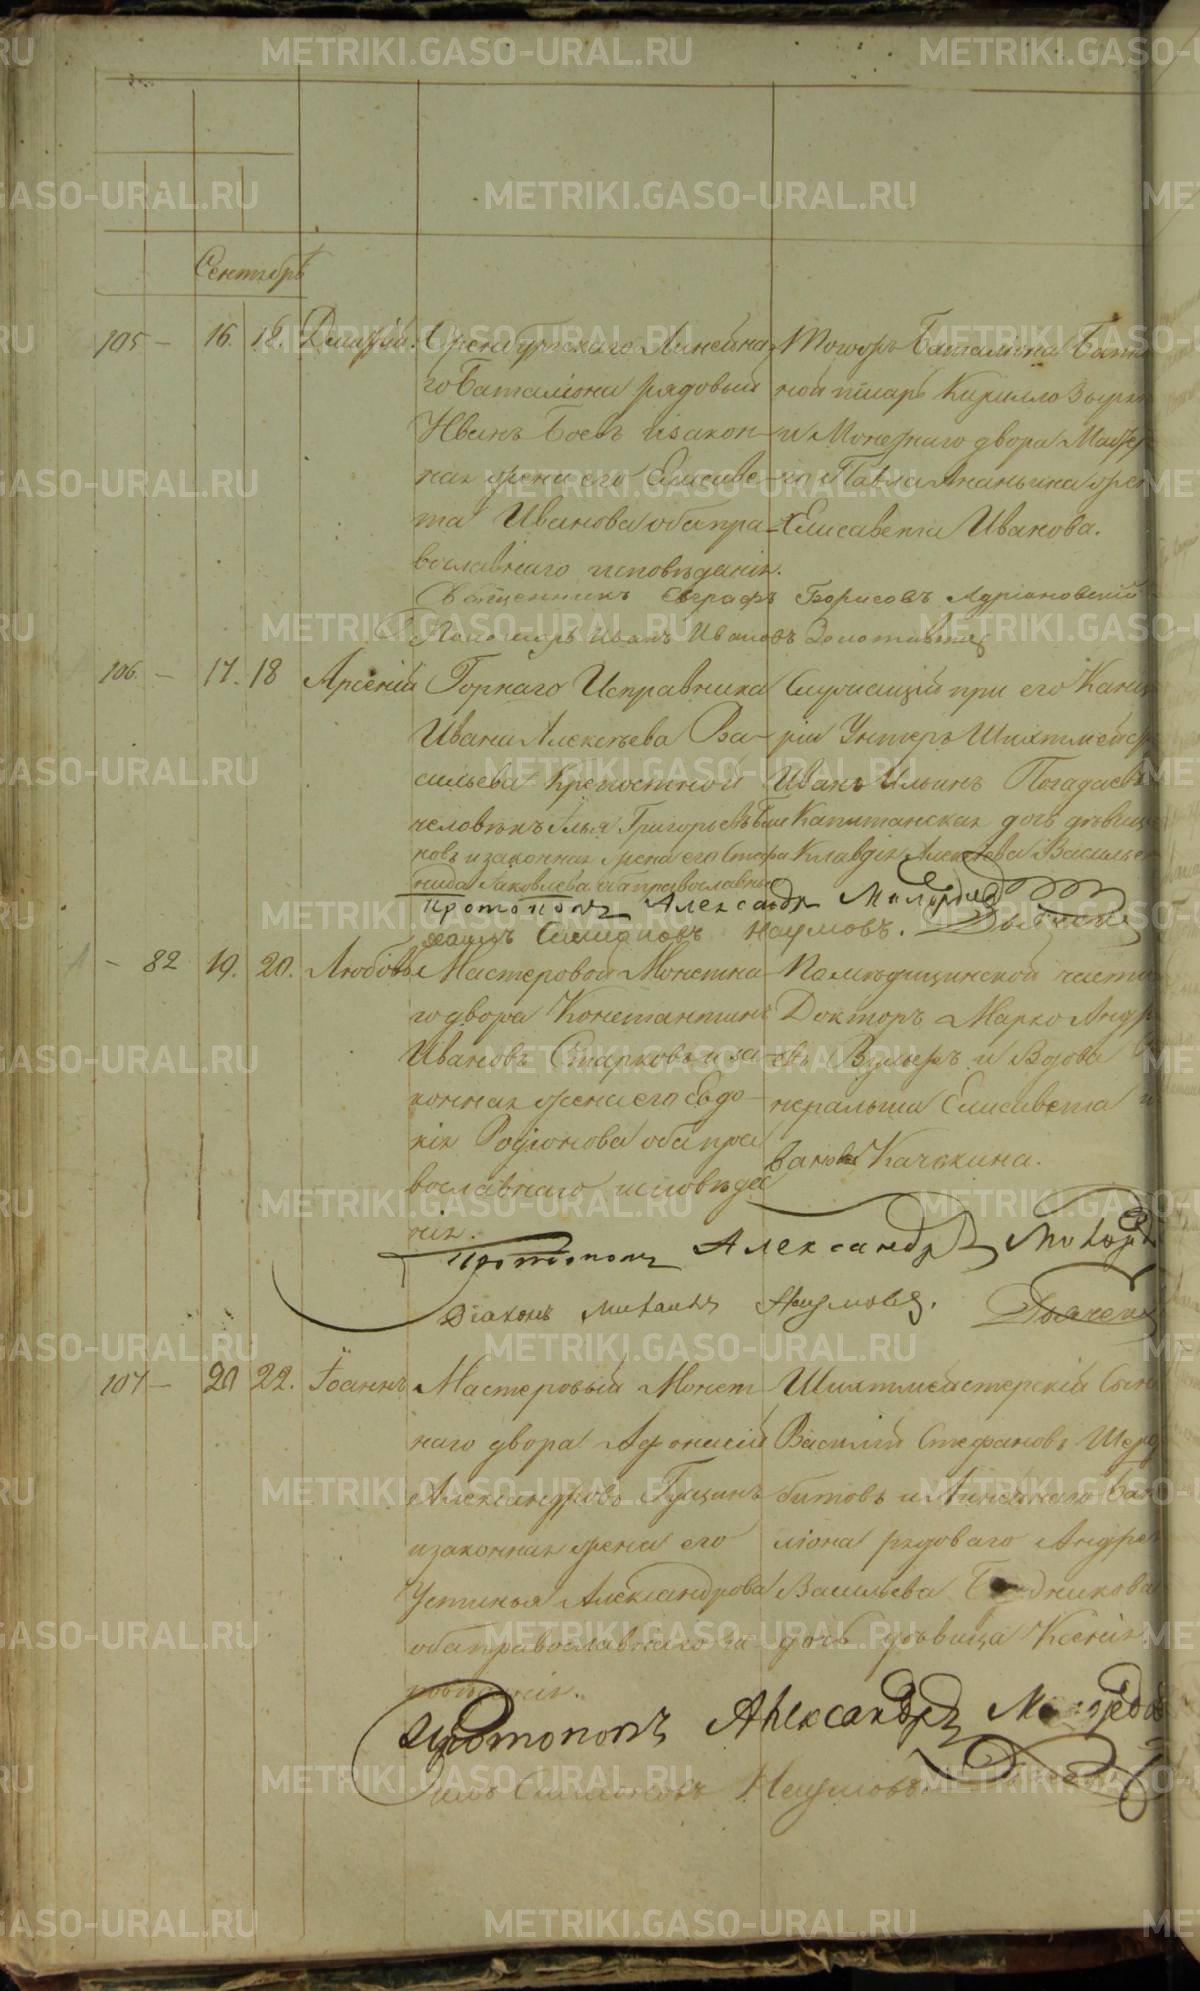 Сентябрь
105 — 16. 18. Димитрій. Оренбургскаго Линейна-
го Баталіона рядовый
Иванъ Боевъ и закон-
ная жена его Елисаве-
та Иванова оба пра-
вославнаго исповѣданія.
Тогожъ Баталіона
ной писарь Кирилло
и Монетнаго двора
Павла Ананьина
Елисавета Иванова.
Священникъ Евграфъ Борисовъ Адріановскій
Пономарь Иванъ Ивановъ
106. — 17. 18 Арсеній Горнаго Исправника
Ивана Алексѣева Ва-
сильева Крепостной
человѣкъ Илья Григорьевъ
новъ и законная жена его Стефа
нида Яковлева оба православны
Служащій при его
ріи Унтеръ Шихтмейстр
Иванъ Ильинъ Погадаевъ
Капитанская дочь дѣвица
Клавдія Алексѣева
Протопопъ Александръ
Симеоновъ Наумовъ.
— 82 19. 20. Любовь Мастеровой Монетна-
го двора Константинъ
Ивановъ Старковъ и за-
конная жена его Евдо-
кія Родіонова оба пра
вославнаго исповѣда
нія.
По медицинской части
Докторъ Марко Андр
евъ и Вдова
неральша Елисавета И
ванова Качкина.
Протопопъ Александръ
Діаконъ Михаилъ Наумовъ.
107 — 20 22. Іоаннъ Мастеровый Монет
наго двора Афонасій
Александровъ Гущинъ
и законная жена его
Устинья Александрова
оба православнаго ис-
повѣданія.
Шихтмейстерскій Сын
Василій Стефановъ Щерб
битовъ и Линейнаго Бат
ліона рядоваго Андре
Васильева
дочь дѣвица Ксенія.
Протопопъ Александръ
Симеоновъ Наумовъ
METRIKI.GASO-URAL.RU